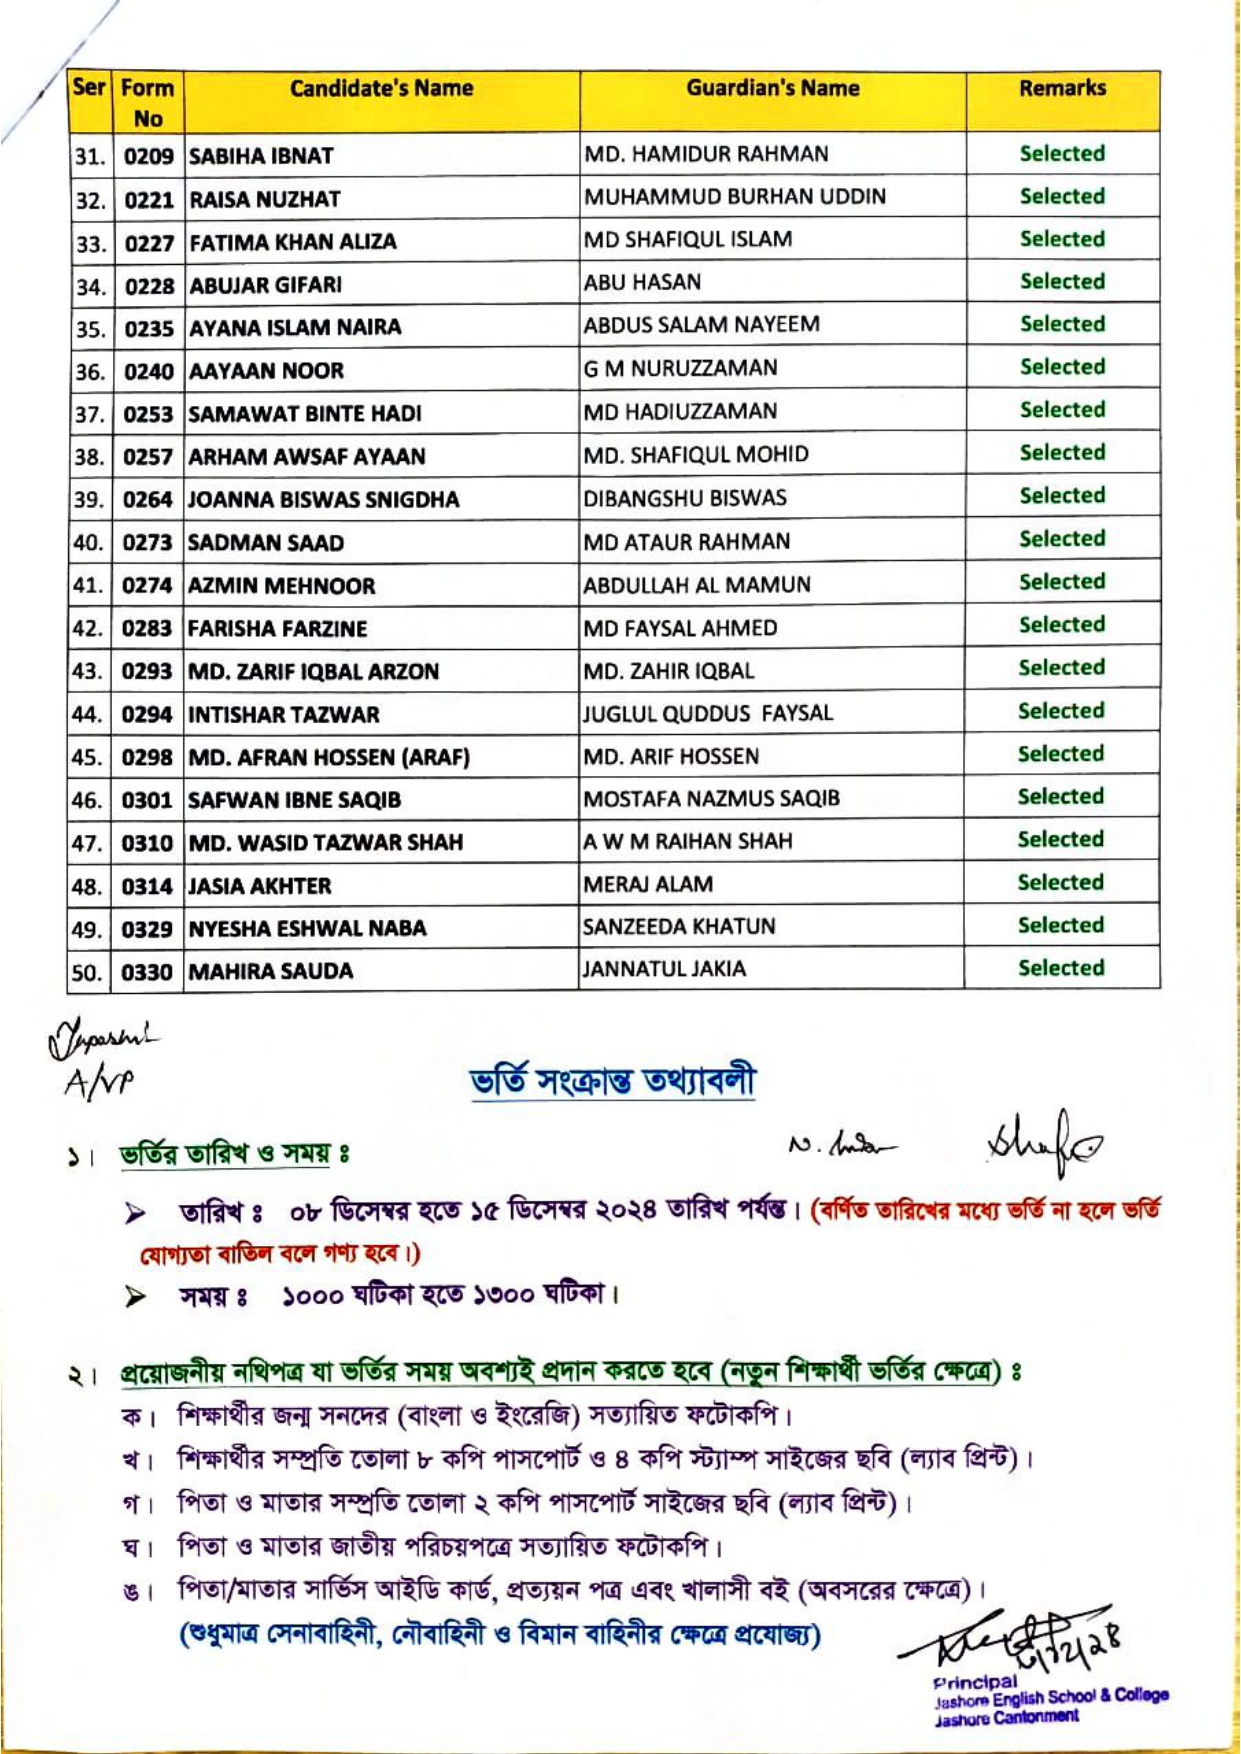 Ser Form No Candidate's Name Guardian's Name Remarks
31. 0209 SABIHA IBNAT MD. HAMIDUR RAHMAN Selected
32. 0221 RAISA NUZHAT MUHAMMUD BURHAN UDDIN Selected
33. 0227 FATIMA KHAN ALIZA MD SHAFIQUL ISLAM Selected
34. 0228 ABUJAR GIFARI ABU HASAN Selected
35. 0235 AYANA ISLAM NAIRA ABDUS SALAM NAYEEM Selected
36. 0240 AAYAAN NOOR G M NURUZZAMAN Selected
37. 0253 SAMAWAT BINTE HADI MD HADIUZZAMAN Selected
38. 0257 ARHAM AWSAF AYAAN MD. SHAFIQUL MOHID Selected
39. 0264 JOANNA BISWAS SNIGDHA DIBANGSHU BISWAS Selected
40. 0273 SADMAN SAAD MD ATAUR RAHMAN Selected
41. 0274 AZMIN MEHNOOR ABDULLAH AL MAMUN Selected
42. 0283 FARISHA FARZINE MD FAYSAL AHMED Selected
43. 0293 MD. ZARIF IQBAL ARZON MD. ZAHIR IQBAL Selected
44. 0294 INTISHAR TAZWAR JUGLUL QUDDUS FAYSAL Selected
45. 0298 MD. AFRAN HOSSEN (ARAF) MD. ARIF HOSSEN Selected
46. 0301 SAFWAN IBNE SAQIB MOSTAFA NAZMUS SAQIB Selected
47. 0310 MD. WASID TAZWAR SHAH A W M RAIHAN SHAH Selected
48. 0314 JASIA AKHTER MERAJ ALAM Selected
49. 0329 NYESHA ESHWAL NABA SANZEEDA KHATUN Selected
50. 0330 MAHIRA SAUDA JANNATUL JAKIA Selected
A/VP
ভর্তি সংক্রান্ত তথ্যাবলী
১। ভর্তির তারিখ ও সময় ঃ
➢ তারিখ ঃ ০৮ ডিসেম্বর হতে ১৫ ডিসেম্বর ২০২৪ তারিখ পর্যন্ত। (বর্ণিত তারিখের মধ্যে ভর্তি না হলে ভর্তি
যোগ্যতা বাতিল বলে গণ্য হবে।)
➢ সময় ঃ ১০০০ ঘটিকা হতে ১৩০০ ঘটিকা।
২। প্রয়োজনীয় নথিপত্র যা ভর্তির সময় অবশ্যই প্রদান করতে হবে (নতুন শিক্ষার্থী ভর্তির ক্ষেত্রে) ঃ
ক। শিক্ষার্থীর জন্ম সনদের (বাংলা ও ইংরেজি) সত্যায়িত ফটোকপি।
খ। শিক্ষার্থীর সম্প্রতি তোলা ৮ কপি পাসপোর্ট ও ৪ কপি স্ট্যাম্প সাইজের ছবি (ল্যাব প্রিন্ট)।
গ। পিতা ও মাতার সম্প্রতি তোলা ২ কপি পাসপোর্ট সাইজের ছবি (ল্যাব প্রিন্ট)।
ঘ। পিতা ও মাতার জাতীয় পরিচয়পত্রে সত্যায়িত ফটোকপি।
ঙ। পিতা/মাতার সার্ভিস আইডি কার্ড, প্রত্যয়ন পত্র এবং খালাসী বই (অবসরের ক্ষেত্রে)।
(শুধুমাত্র সেনাবাহিনী, নৌবাহিনী ও বিমান বাহিনীর ক্ষেত্রে প্রযোজ্য)
Principal
Jashore English School & College
Jashore Cantonment